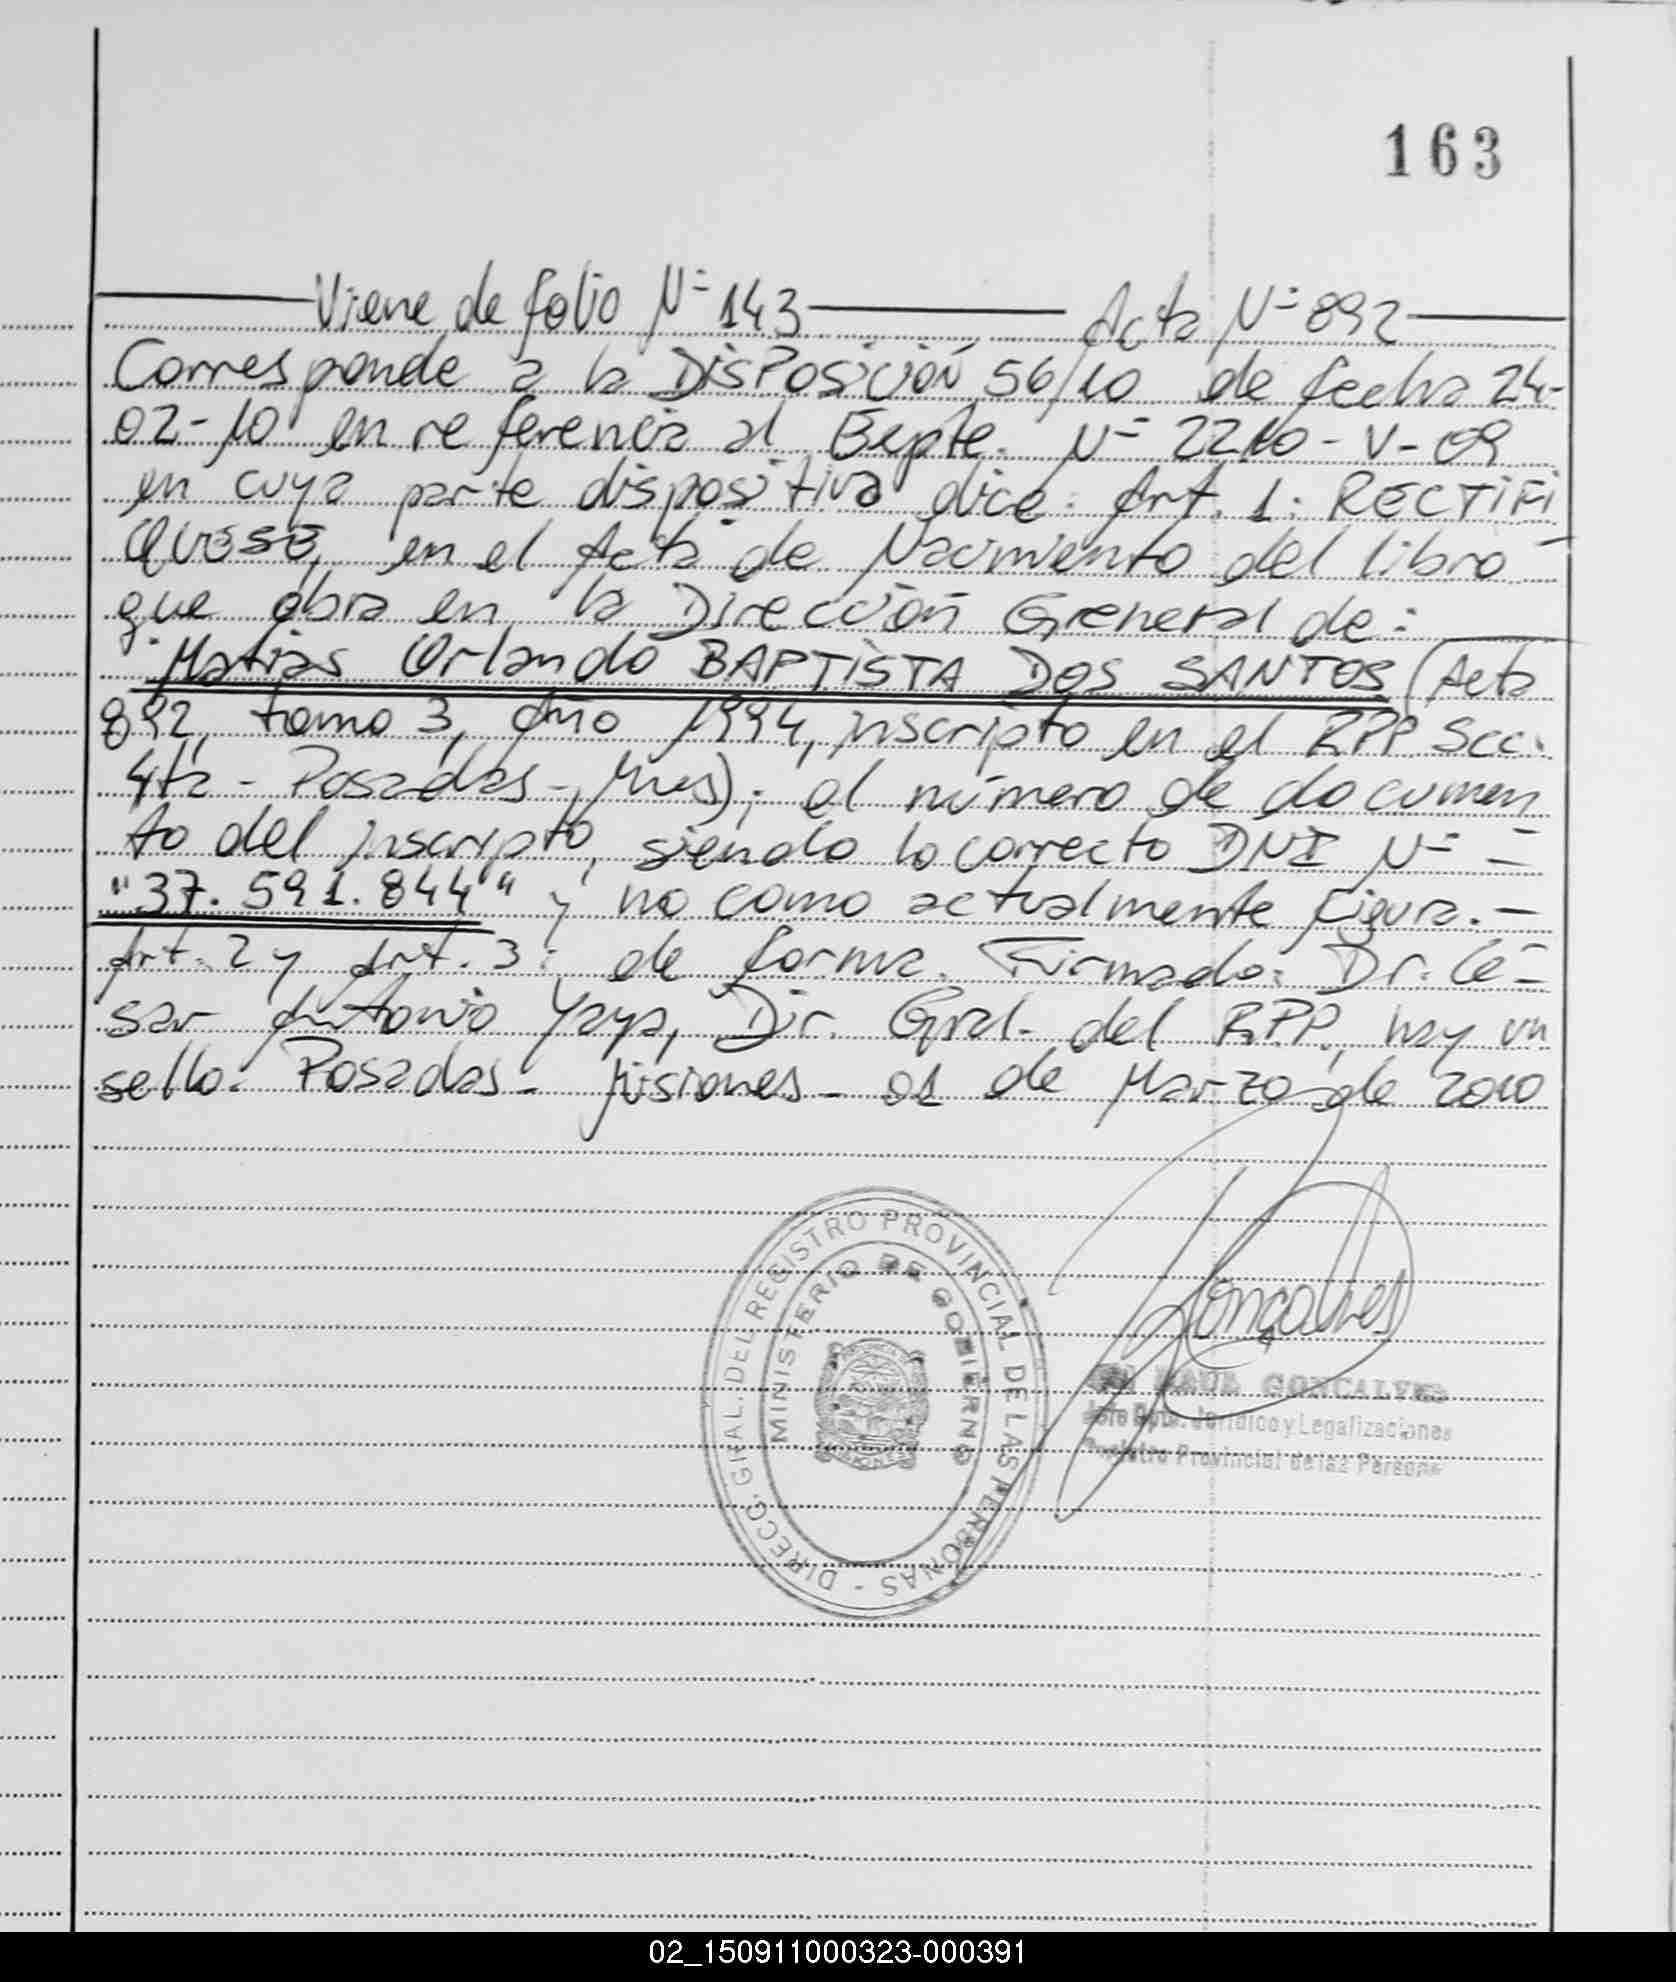 163
Viene de folio Nº 143 Acta Nº 892
Corresponde a la DISPOSICIÓN 56/10 de fecha 24-
02-10 en referencia al Expte. Nº 2210-V-09
en cuya parte dispositiva dice: Art. 1: RECTIFI
QUESE, en el Acta de Nacimiento del libro
que obra en la Dirección General de:
Matias Orlando BAPTISTA DOS SANTOS (Acta
892, tomo 3, Año 1994, inscripto en el RPP Secc.
4ta - Posadas - Mnes); el número de documen
to del inscripto, siendo lo correcto DNI Nº =
"37.591.844" y no como actualmente figura.-
Art. 2 y Art. 3: de forma. Firmado: Dr. Cé-
sar Antonio Yaya, Dir. Gral. del RPP, hay un
sello. Posadas - Misiones - 01 de Marzo de 2010
DIRECC. GRAL. DEL REGISTRO PROVINCIAL DE LAS PERSONAS -
MINISTERIO DE GOBIERNO
MISIONES
Goncalves
GONCALVES
Jefe Dpto. Jurídico y Legalizaciones
Registro Provincial de las Personas
02_150911000323-000391